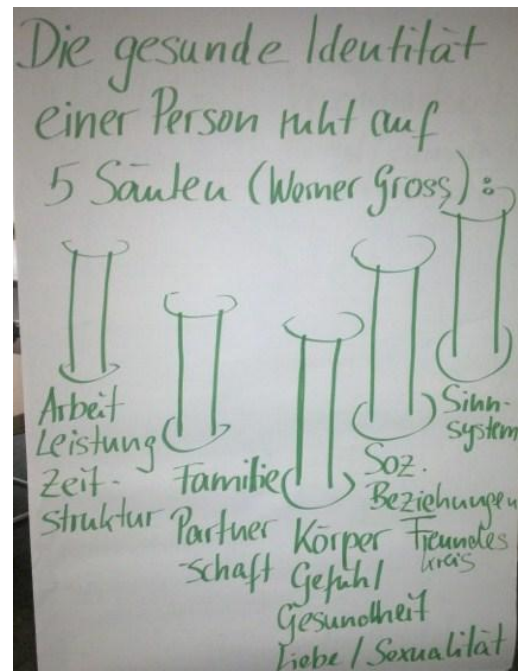 Die gesunde Identität
einer Person ruht auf
5 Säulen (Werner Gross):
Arbeit
Leistung
Zeit-
struktur
Familie
Partner
-schaft
Körper
Gefühl
Gesundheit
Liebe / Sexualität
Soz.
Beziehungen
Freundes
kreis
Sinn-
system